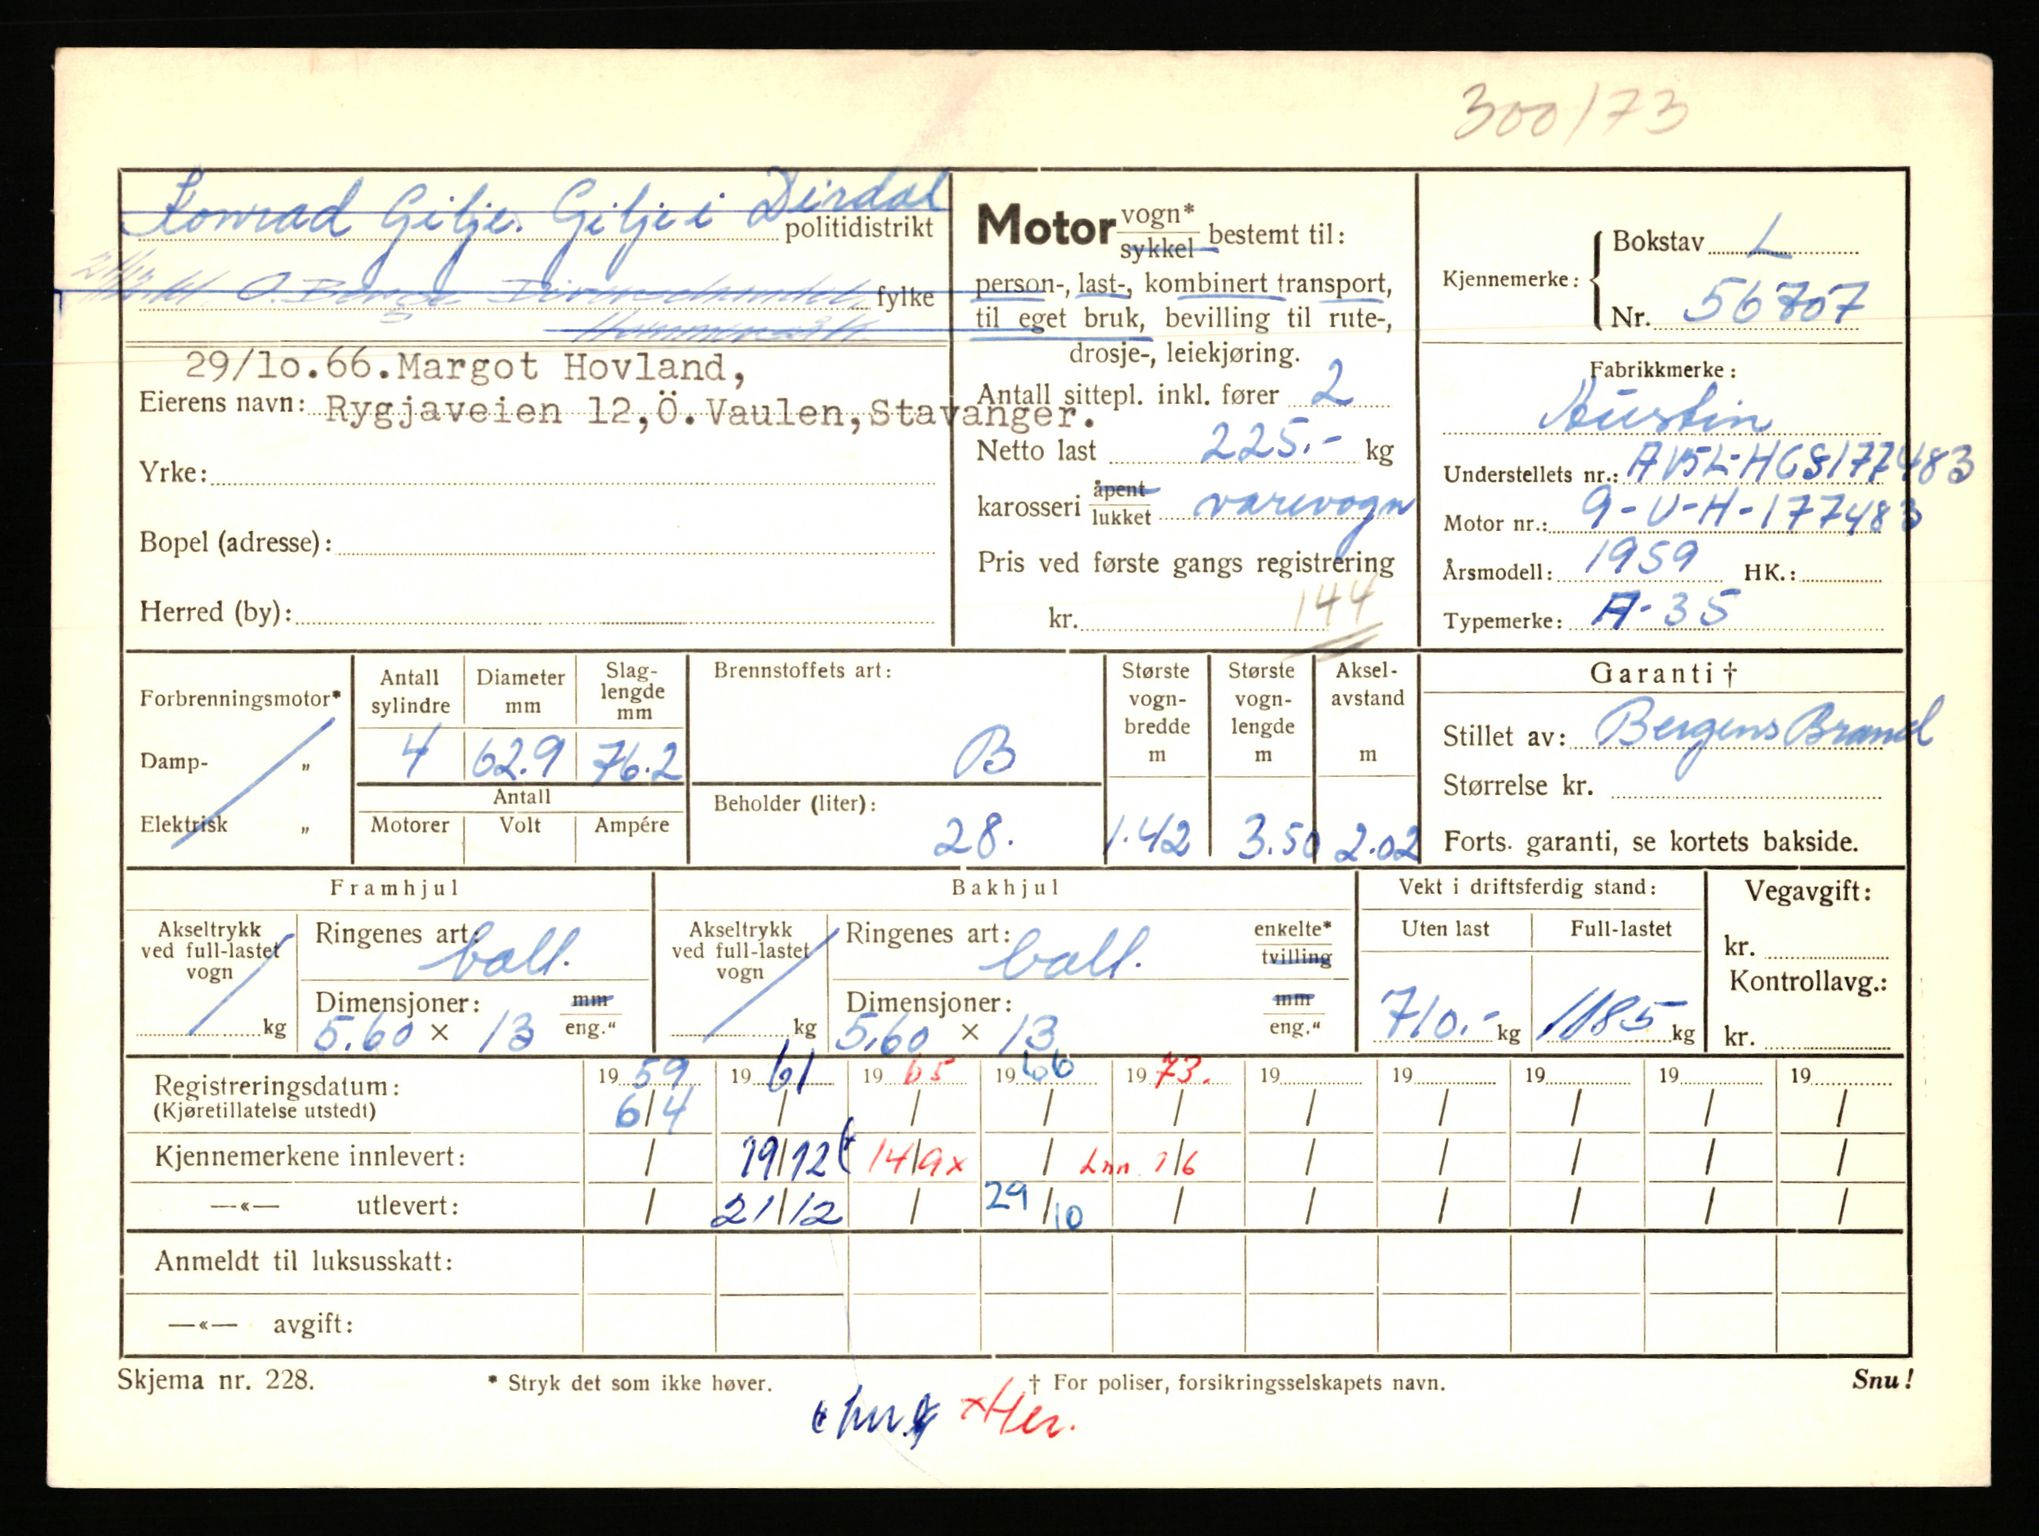 300/73
Konrad Gilje. Gilje i Dirdal
politidistrikt
O. Berge fylke
29/10.66. Margot Hovland,
Eierens navn: Rygjaveien 12, Ö. Vaulen, Stavanger.
Yrke:
Bopel (adresse):
Herred (by):
Motor vogn* sykkel bestemt til:
person-, last-, kombinert transport,
til eget bruk, bevilling til rute-,
drosje-, leiekjøring.
Antall sittepl. inkl. fører 2
Netto last 225.- kg
karosseri åpent lukket varevogn
Pris ved første gangs registrering
kr. 144
Kjennemerke: Bokstav L
Nr. 56707
Fabrikkmerke:
Austin
Understellets nr.: AV5L-HCS177483
Motor nr.: 9-U-H-177483
Årsmodell: 1959 HK.:
Typemerke: A-35
Forbrenningsmotor*
Damp- „
Elektrisk „
Antall sylindre 4
Diameter mm 62.9
Slag-lengde mm 76.2
Antall
Motorer Volt Ampére
Brennstoffets art:
B
Beholder (liter):
28.
Største vogn-bredde m 1.42
Største vogn-lengde m 3.50
Aksel-avstand m 2.02
Garanti †
Stillet av: Bergens Brand
Størrelse kr.
Forts. garanti, se kortets bakside.
Framhjul
Akseltrykk ved full-lastet vogn kg
Ringenes art: ball.
Dimensjoner: mm
5.60 × 13 eng."
Bakhjul
Akseltrykk ved full-lastet vogn kg
Ringenes art: ball. enkelte* tvilling
Dimensjoner: mm
5.60 × 13 eng."
Vekt i driftsferdig stand:
Uten last 710.- kg
Full-lastet 1185 kg
Vegavgift:
kr.
Kontrollavg.:
kr.
Registreringsdatum: 1959 1961 1965 1966 1973. 19 19 19 19 19
(Kjøretillatelse utstedt) 6/4 / / / / / / / / /
Kjennemerkene innlevert: / 19/12 14/9x / Inn 1/6 / / / / /
—«— utlevert: / 21/12 / 29/10 / / / / / /
Anmeldt til luksusskatt:
—«— avgift:
Skjema nr. 228. * Stryk det som ikke høver. † For poliser, forsikringsselskapets navn. Snu!
x Her.